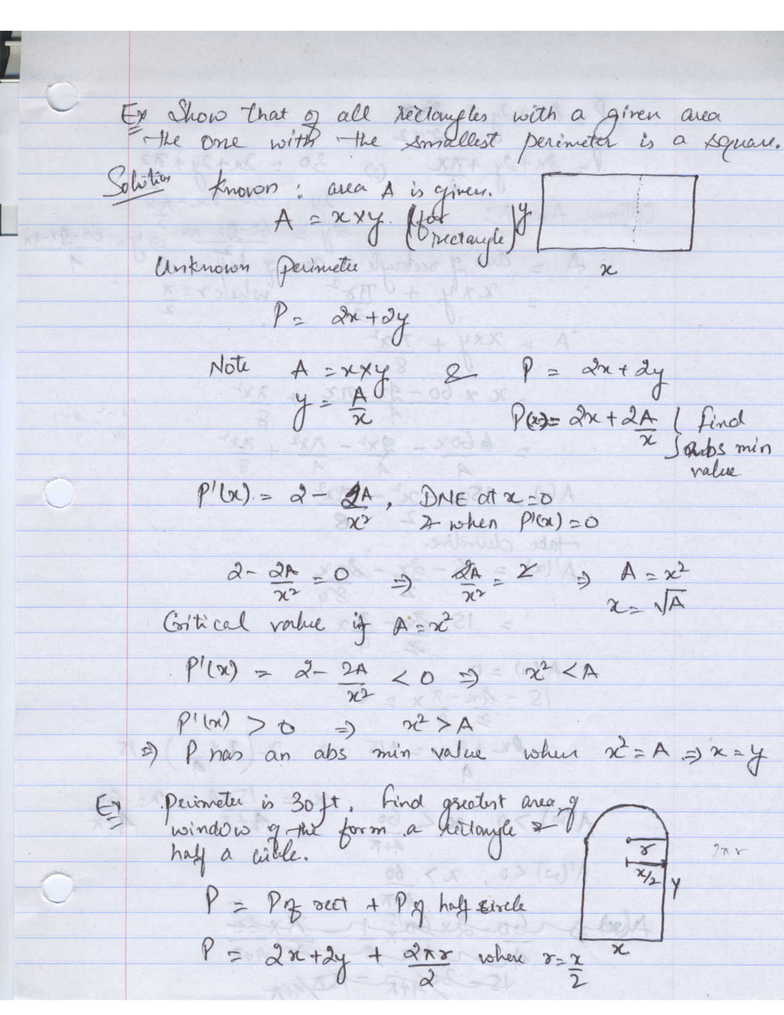 Ex Show that of all rectangles with a given area
the one with the smallest perimeter is a square.
Solution Known : area A is given.
A = x×y. (for rectangle) y
x
Unknown perimeter
P = 2x+2y
Note A = x×y & P = 2x+2y
y = A/x P(x) = 2x + 2A/x } find abs min value
P'(x) = 2 - 2A/x², DNE at x=0
& when P'(x)=0
2 - 2A/x² = 0 ⇒ 2A/x² = 2 ⇒ A = x²
x = √A
Critical value if A = x²
P'(x) = 2 - 2A/x² < 0 ⇒ x² < A
P'(x) > 0 ⇒ x² > A
⇒ P has an abs min value when x² = A ⇒ x = y
Ex Perimeter is 30 ft. Find greatest area of
window of the form a rectangle &
half a circle.
r
x/2
y
x
2πr
P = P of rect + P of half circle
P = 2x+2y + 2πr/2 where r = x/2